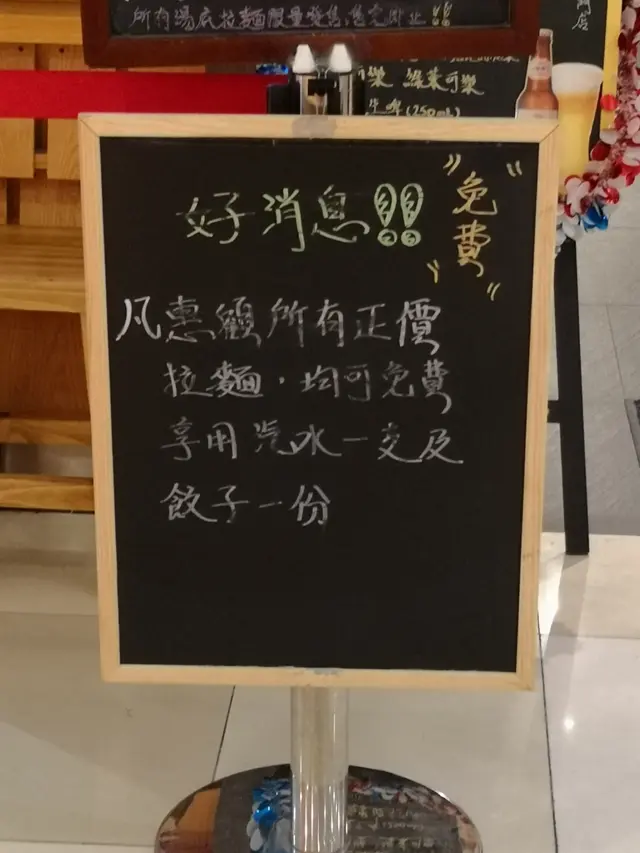 所有湯底拉麵限量發售,售完即止!!
可樂 綠茶可樂
生啤(250mL)
好消息!!
"免費"
凡惠顧所有正價
拉麵,均可免費
享用汽水一支及
餃子一份